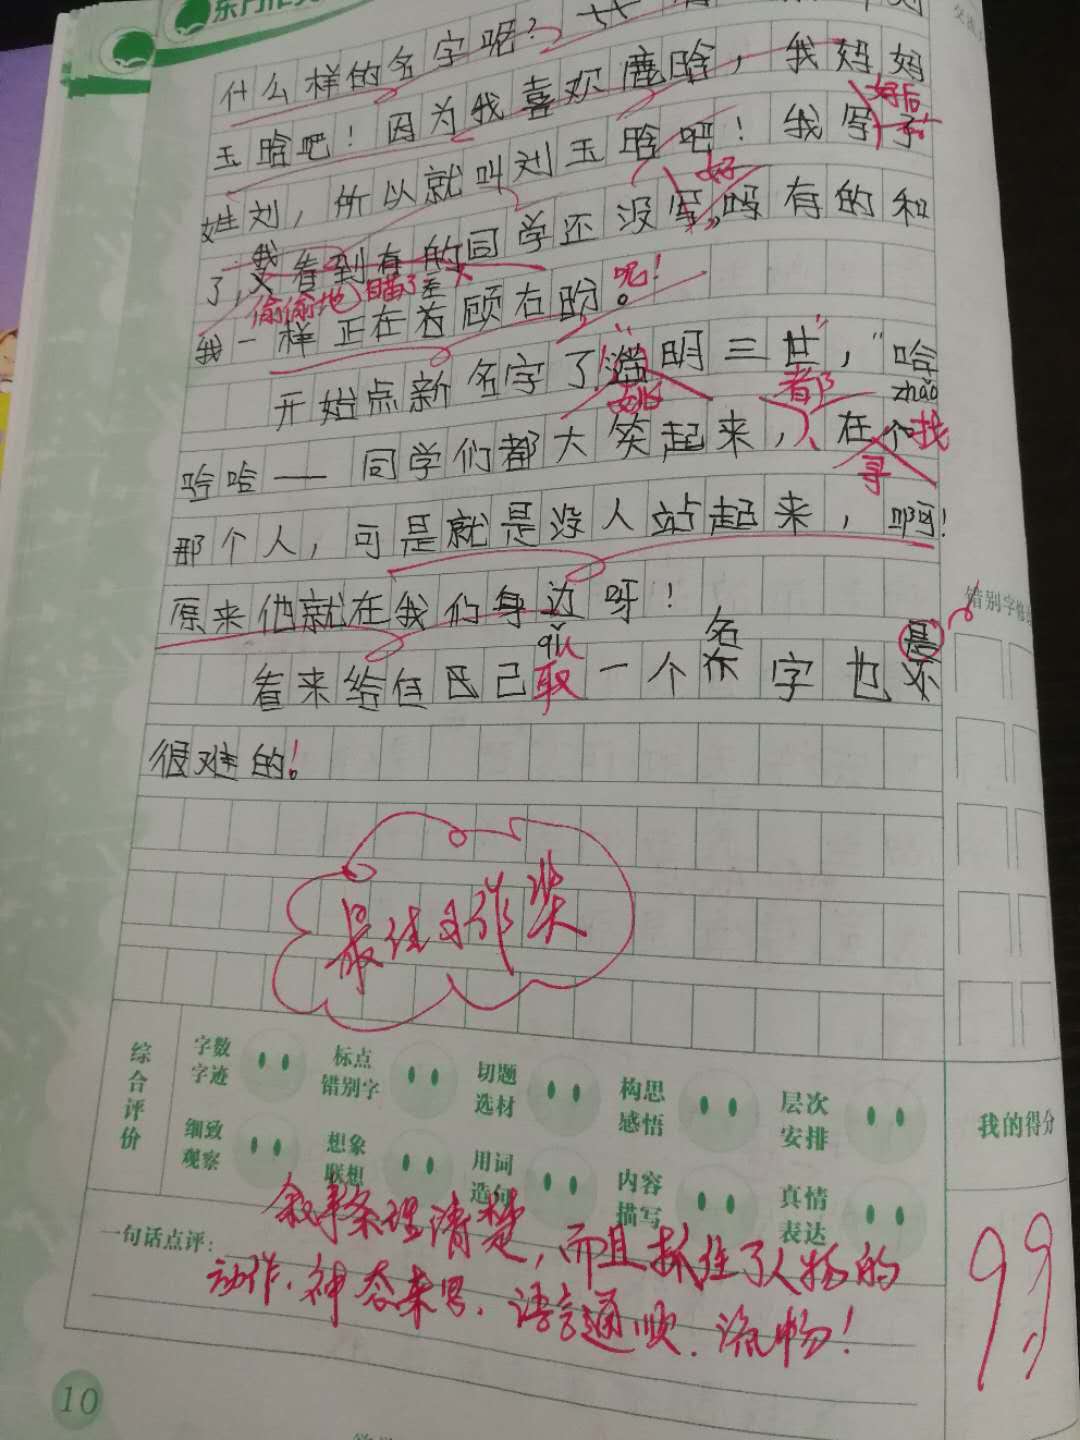 什么样的名字呢？
玉晗吧！因为我喜欢鹿晗，我妈妈
好后
姓刘，所以就叫刘玉晗吧！我写了
好
了，我看到有的同学还没写，有的和
偷偷地瞄了
我一样正在左顾右盼。呢！
开始点新名字了"猫明三世"，"哈
都 zhǎo
哈哈——同学们都大笑起来，在找
寻
那个人，可是就是没人站起来，啊！
原来他就在我们身边呀！
qǔ 名 是
看来给自己取一个字也还
很难的！
最佳习作奖
错别字
综合评价
字数字迹 标点错别字 切题选材 构思感悟 层次安排
我的得分
细致观察 想象联想 用词造句 内容描写 真情表达
99
一句话点评：叙事条理清楚，而且抓住了人物的
动作、神态来写，语言通顺、流畅！
10